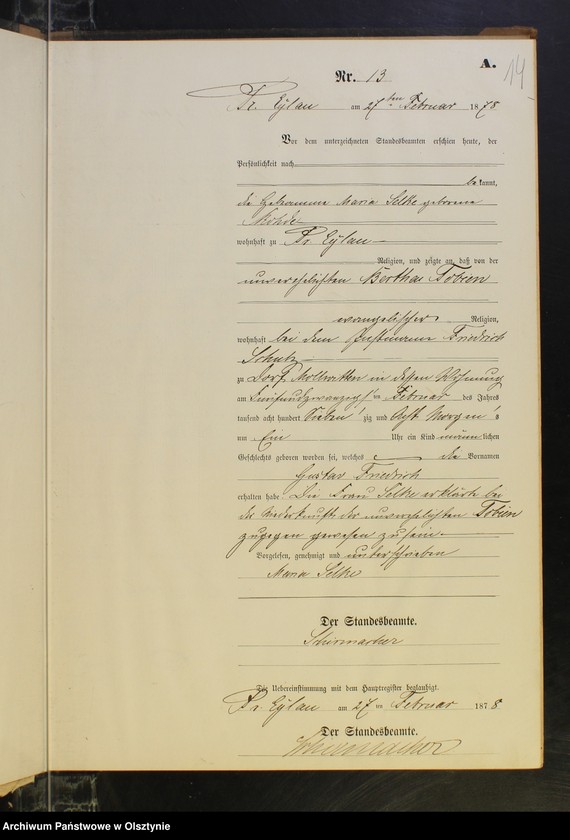 A.
14
Nr. 13
Pr. Eylau am 27ten Februar 1878
Vor dem unterzeichneten Standesbeamten erschien heute, der
Persönlichkeit nach
bekannt,
die Hebamme Maria Selke geborene
wohnhaft zu Pr. Eylau
Religion, und zeigte an, daß von der
unverehelichten Bertha Tobien
evangelischer Religion,
wohnhaft bei dem Instmann Friedrich
Schulz
zu Dorf Mollwitten in dessen Wohnung
am Februar des Jahres
tausend acht hundert Sieben zig und Acht Morgens
um Ein Uhr ein Kind männlichen
Geschlechts geboren worden sei, welches die Vornamen
Gustav Friedrich
erhalten habe. Die Frau Selke erklärte bei
der Niederkunft der unverehelichten Tobien
zugegen gewesen zu sein.
Vorgelesen, genehmigt und unterschrieben
Maria Selke
Der Standesbeamte.
Schirmacher
Die Uebereinstimmung mit dem Hauptregister beglaubigt.
Pr. Eylau am 27ten Februar 1878.
Der Standesbeamte.
Schirmacher
Archiwum Państwowe w Olsztynie